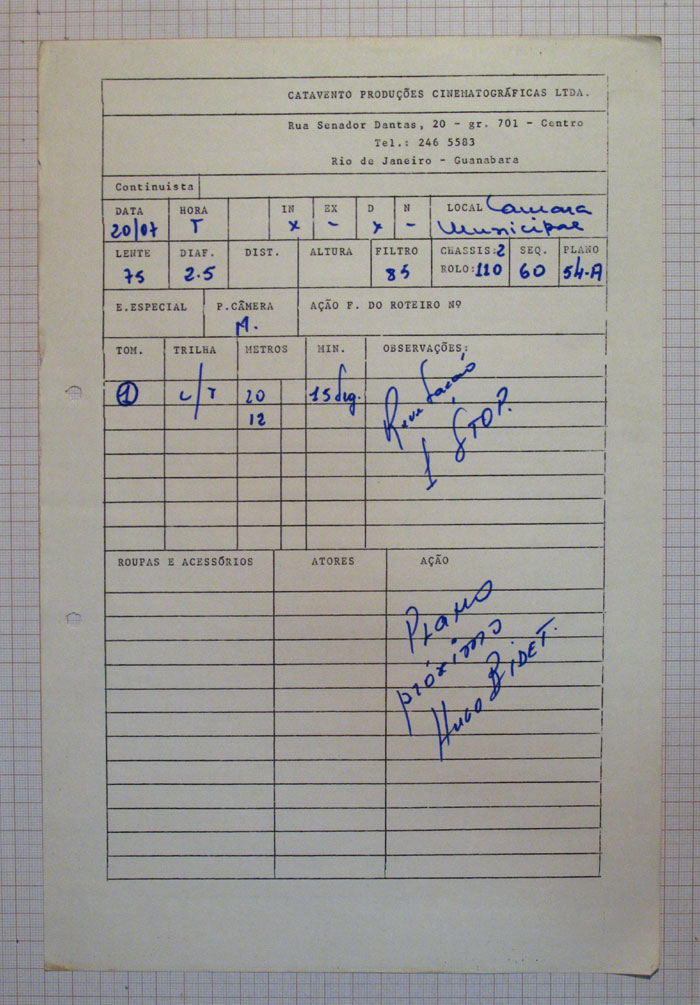 CATAVENTO PRODUÇÕES CINEMATOGRÁFICAS LTDA.
Rua Senador Dantas, 20 - gr. 701 - Centro
Tel.: 246 5583
Rio de Janeiro - Guanabara
Continuista
DATA HORA IN EX D N LOCAL Camara
20/07 T x - x - Municipal
LENTE DIAF. DIST. ALTURA FILTRO CHASSIS:2 SEQ. PLANO
75 2.5 85 ROLO:110 60 54-A
E.ESPECIAL P.CÂMERA AÇÃO F. DO ROTEIRO Nº
M.
TOM. TRILHA METROS MIN. OBSERVAÇÕES:
1 c/T 20 15 seg.
12
1 STOP.
ROUPAS E ACESSÓRIOS ATORES AÇÃO
PLANO
próximo
HUGO BIDET.